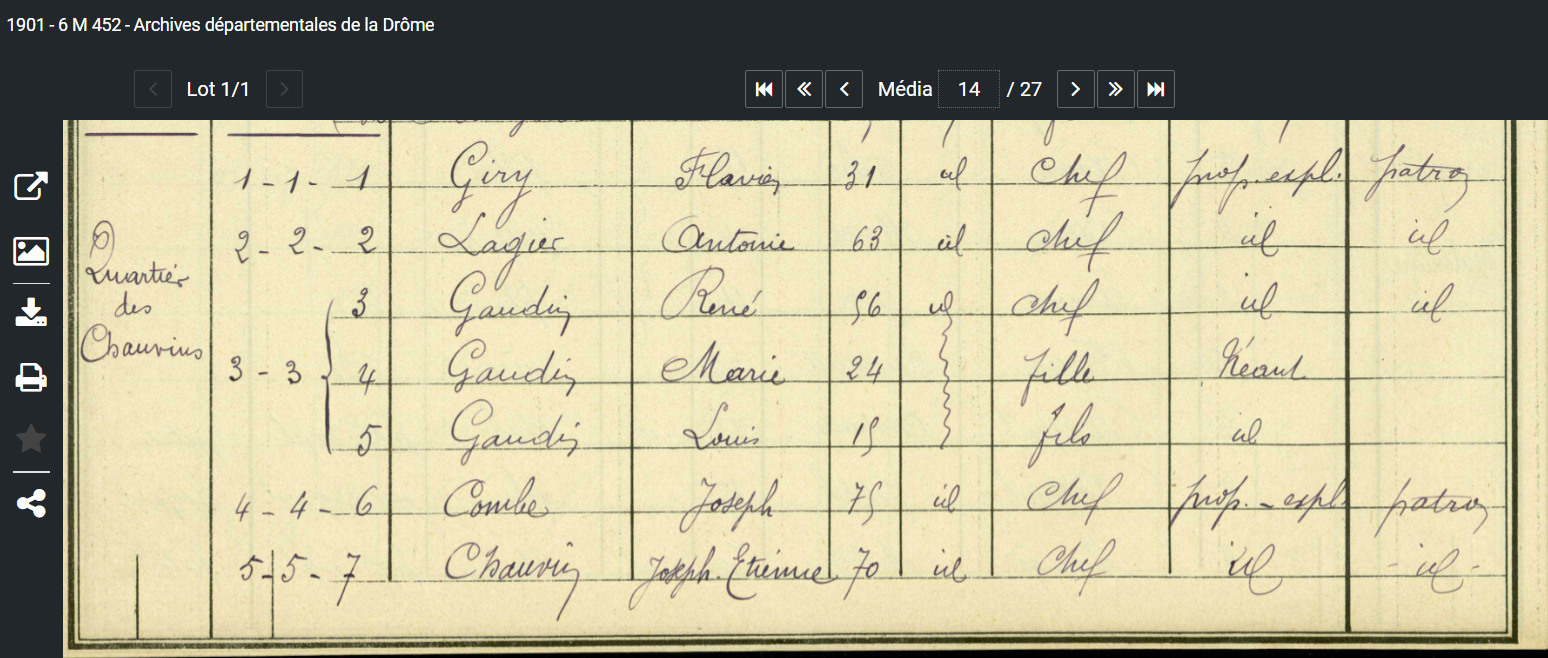 1901 - 6 M 452 - Archives départementales de la Drôme
Lot 1/1
Média 14 / 27
1 - 1 - 1 Giry Flavien 31 id Chef prop. expl. patron
2 - 2 - 2 Lagier Antonie 63 id chef id id
Quartier
des
Chauvins
3 Gaudin René 56 id chef id id
3 - 3 4 Gaudin Marie 24 fille Néant
5 Gaudin Louis 15 fils id
4 - 4 - 6 Combe Joseph 75 id Chef prop. - expl. patron
5 - 5 - 7 Chauvin Joseph. Etienne 70 id Chef id - id -